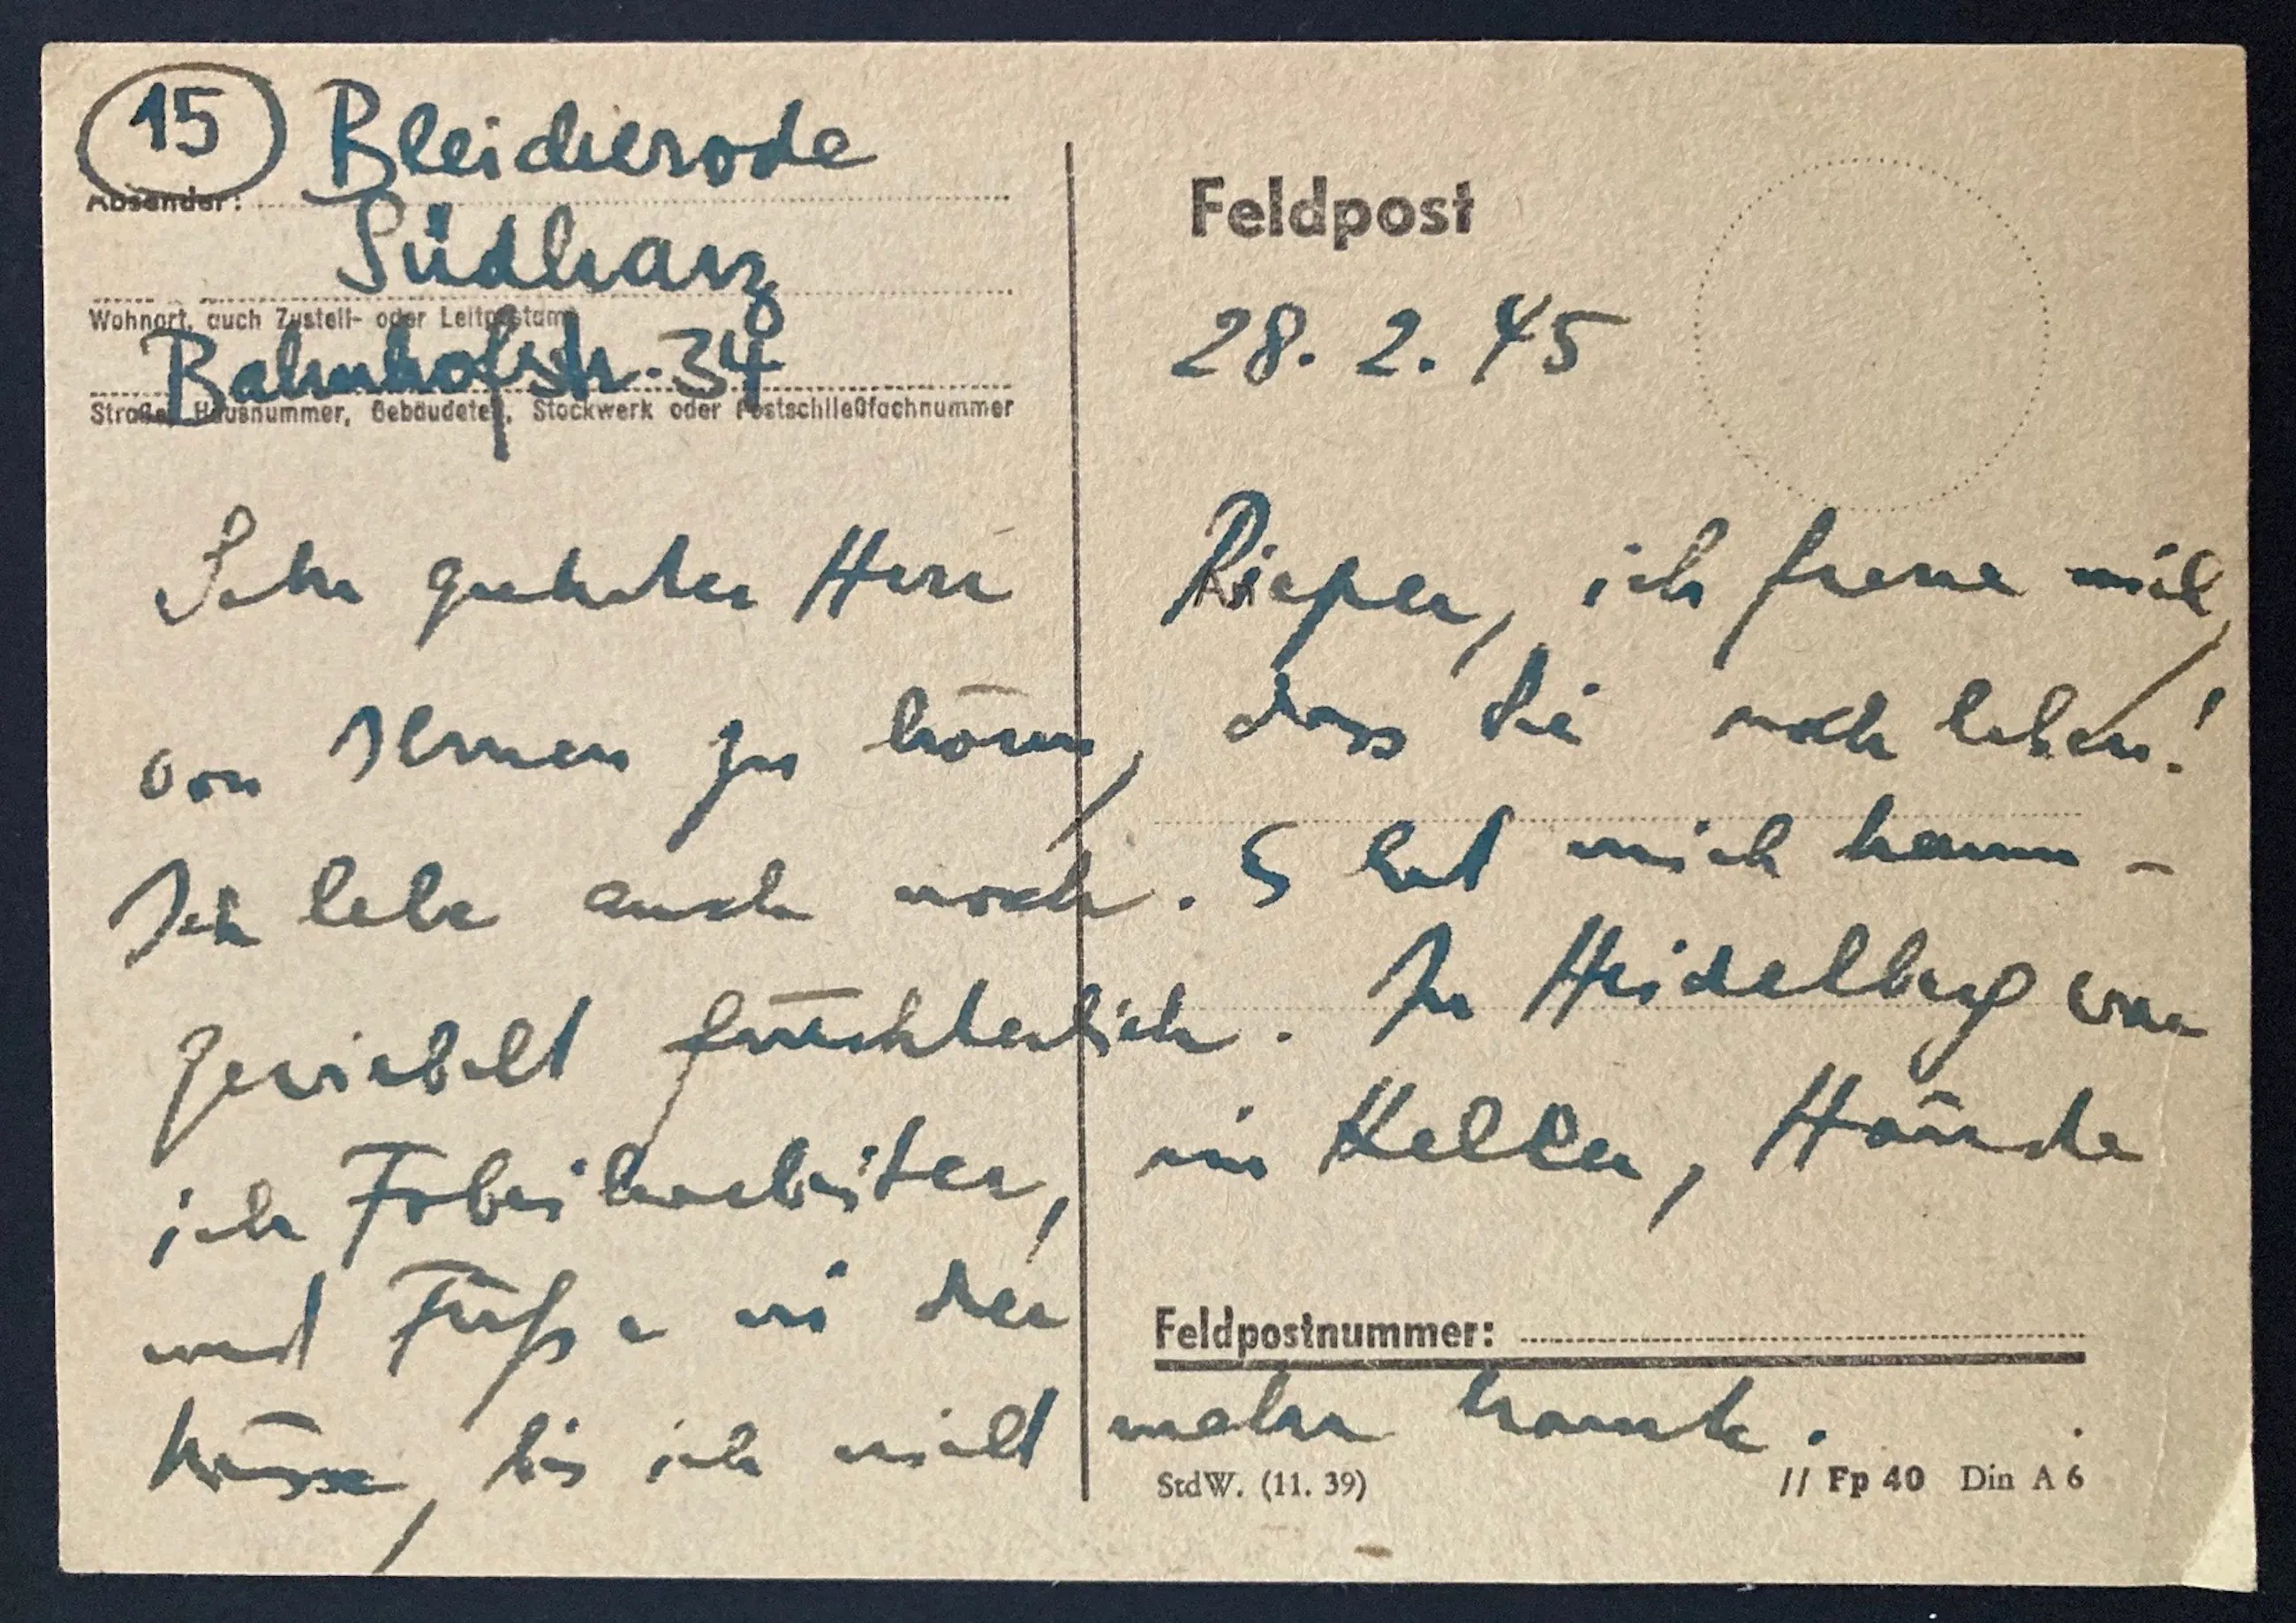 15 Bleicherode
Absender:
Südharz
Wohnort, auch Zustell- oder Leitpostamt
Bahnhofstr. 34
Straße, Hausnummer, Gebäudeteil, Stockwerk oder Postschließfachnummer
Feldpost
28. 2. 45
Sehr geehrter Herr Rieper, ich freue mich,
von Ihnen zu hören, dass Sie noch leben!
Ich lebe auch noch. S hat mich herum-
gewirbelt fürchterlich. In Heidelberg war
ich Fabrikarbeiter, im Keller, Hände
und Füße in der
Feldpostnummer:
Nässe, bis ich nicht mehr konnte.
StdW. (11. 39)
// Fp 40 Din A 6